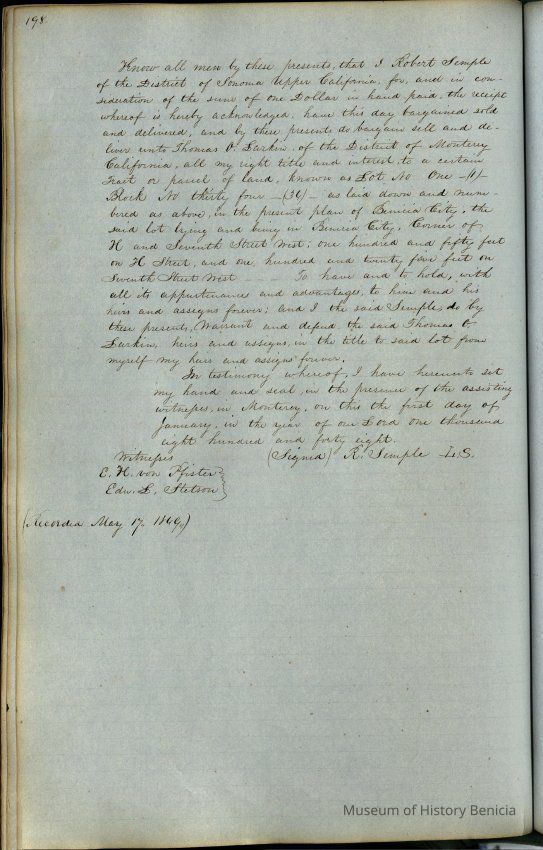 198.
Know all men by these presents, that I Robert Semple
of the District of Sonoma Upper California, for, and in con-
sideration of the sum of one Dollar in hand paid, the receipt
whereof is hereby acknowledged, have this day bargained sold
and delivered, and by these presents do bargain sell and de-
liver unto Thomas O. Larkin, of the District of Monterey
California, all my right title and interest, to a certain
tract or parcel of land, known as Lot No One -(1)-
Block No thirty four -(34)- as laid down and num-
bered as above, in the present plan of Benicia City, the
said lot lying and being in Benicia City, Corner of
H and Seventh Street West; one hundred and fifty feet
on H Street, and one hundred and twenty five feet on
Seventh Street West - - To have and to hold, with
all its appurtenance and advantages, to him and his
heirs and assigns forever; and I the said Semple, do by
these presents, Warrant and defend the said Thomas O
Larkin, heirs and assigns, in the title to said lot from
myself my heirs and assigns forever.
In testimony whereof, I have hereunto set
my hand and seal, in the presence of the assisting
witnesses, in Monterey, on this the first day of
January, in the year of our Lord one thousand
eight hundred and forty eight.
Witnesses (Signed) R. Semple L.S.
E. H. von Pfister
Edw. L. Stetson
(Recorded May 17. 1849.)
Museum of History Benicia